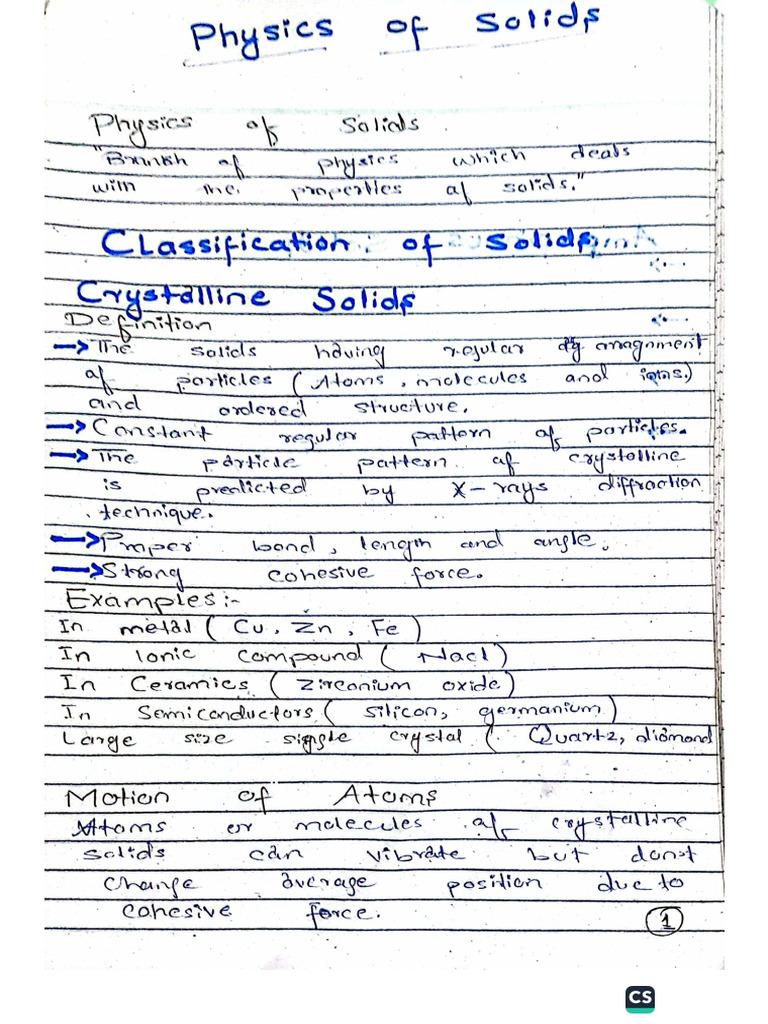 Physics of Solids
Physics of Solids
"Branch of physics which deals
with the properties of solids."
Classification of Solids
Crystalline Solids
Definition
→ The solids having regular arrangnment
of particles (Atoms, molecules and ions.)
and ordered structure.
→ Constant regular pattern of particles.
→ The particle pattern of crystalline
is predicted by X-rays diffraction
technique.
→ Proper bond, length and angle.
→ Strong cohesive force.
Examples:-
In metal (Cu, Zn, Fe)
In Ionic compound (Nacl)
In Ceramics (Zirconium oxide)
In Semiconductors (silicon, germanium)
Large size single crystal (Quartz, diamond
Motion of Atoms
Atoms or molecules of crystalline
solids can vibrate but donot
change average position due to
cohesive force.
1
CS